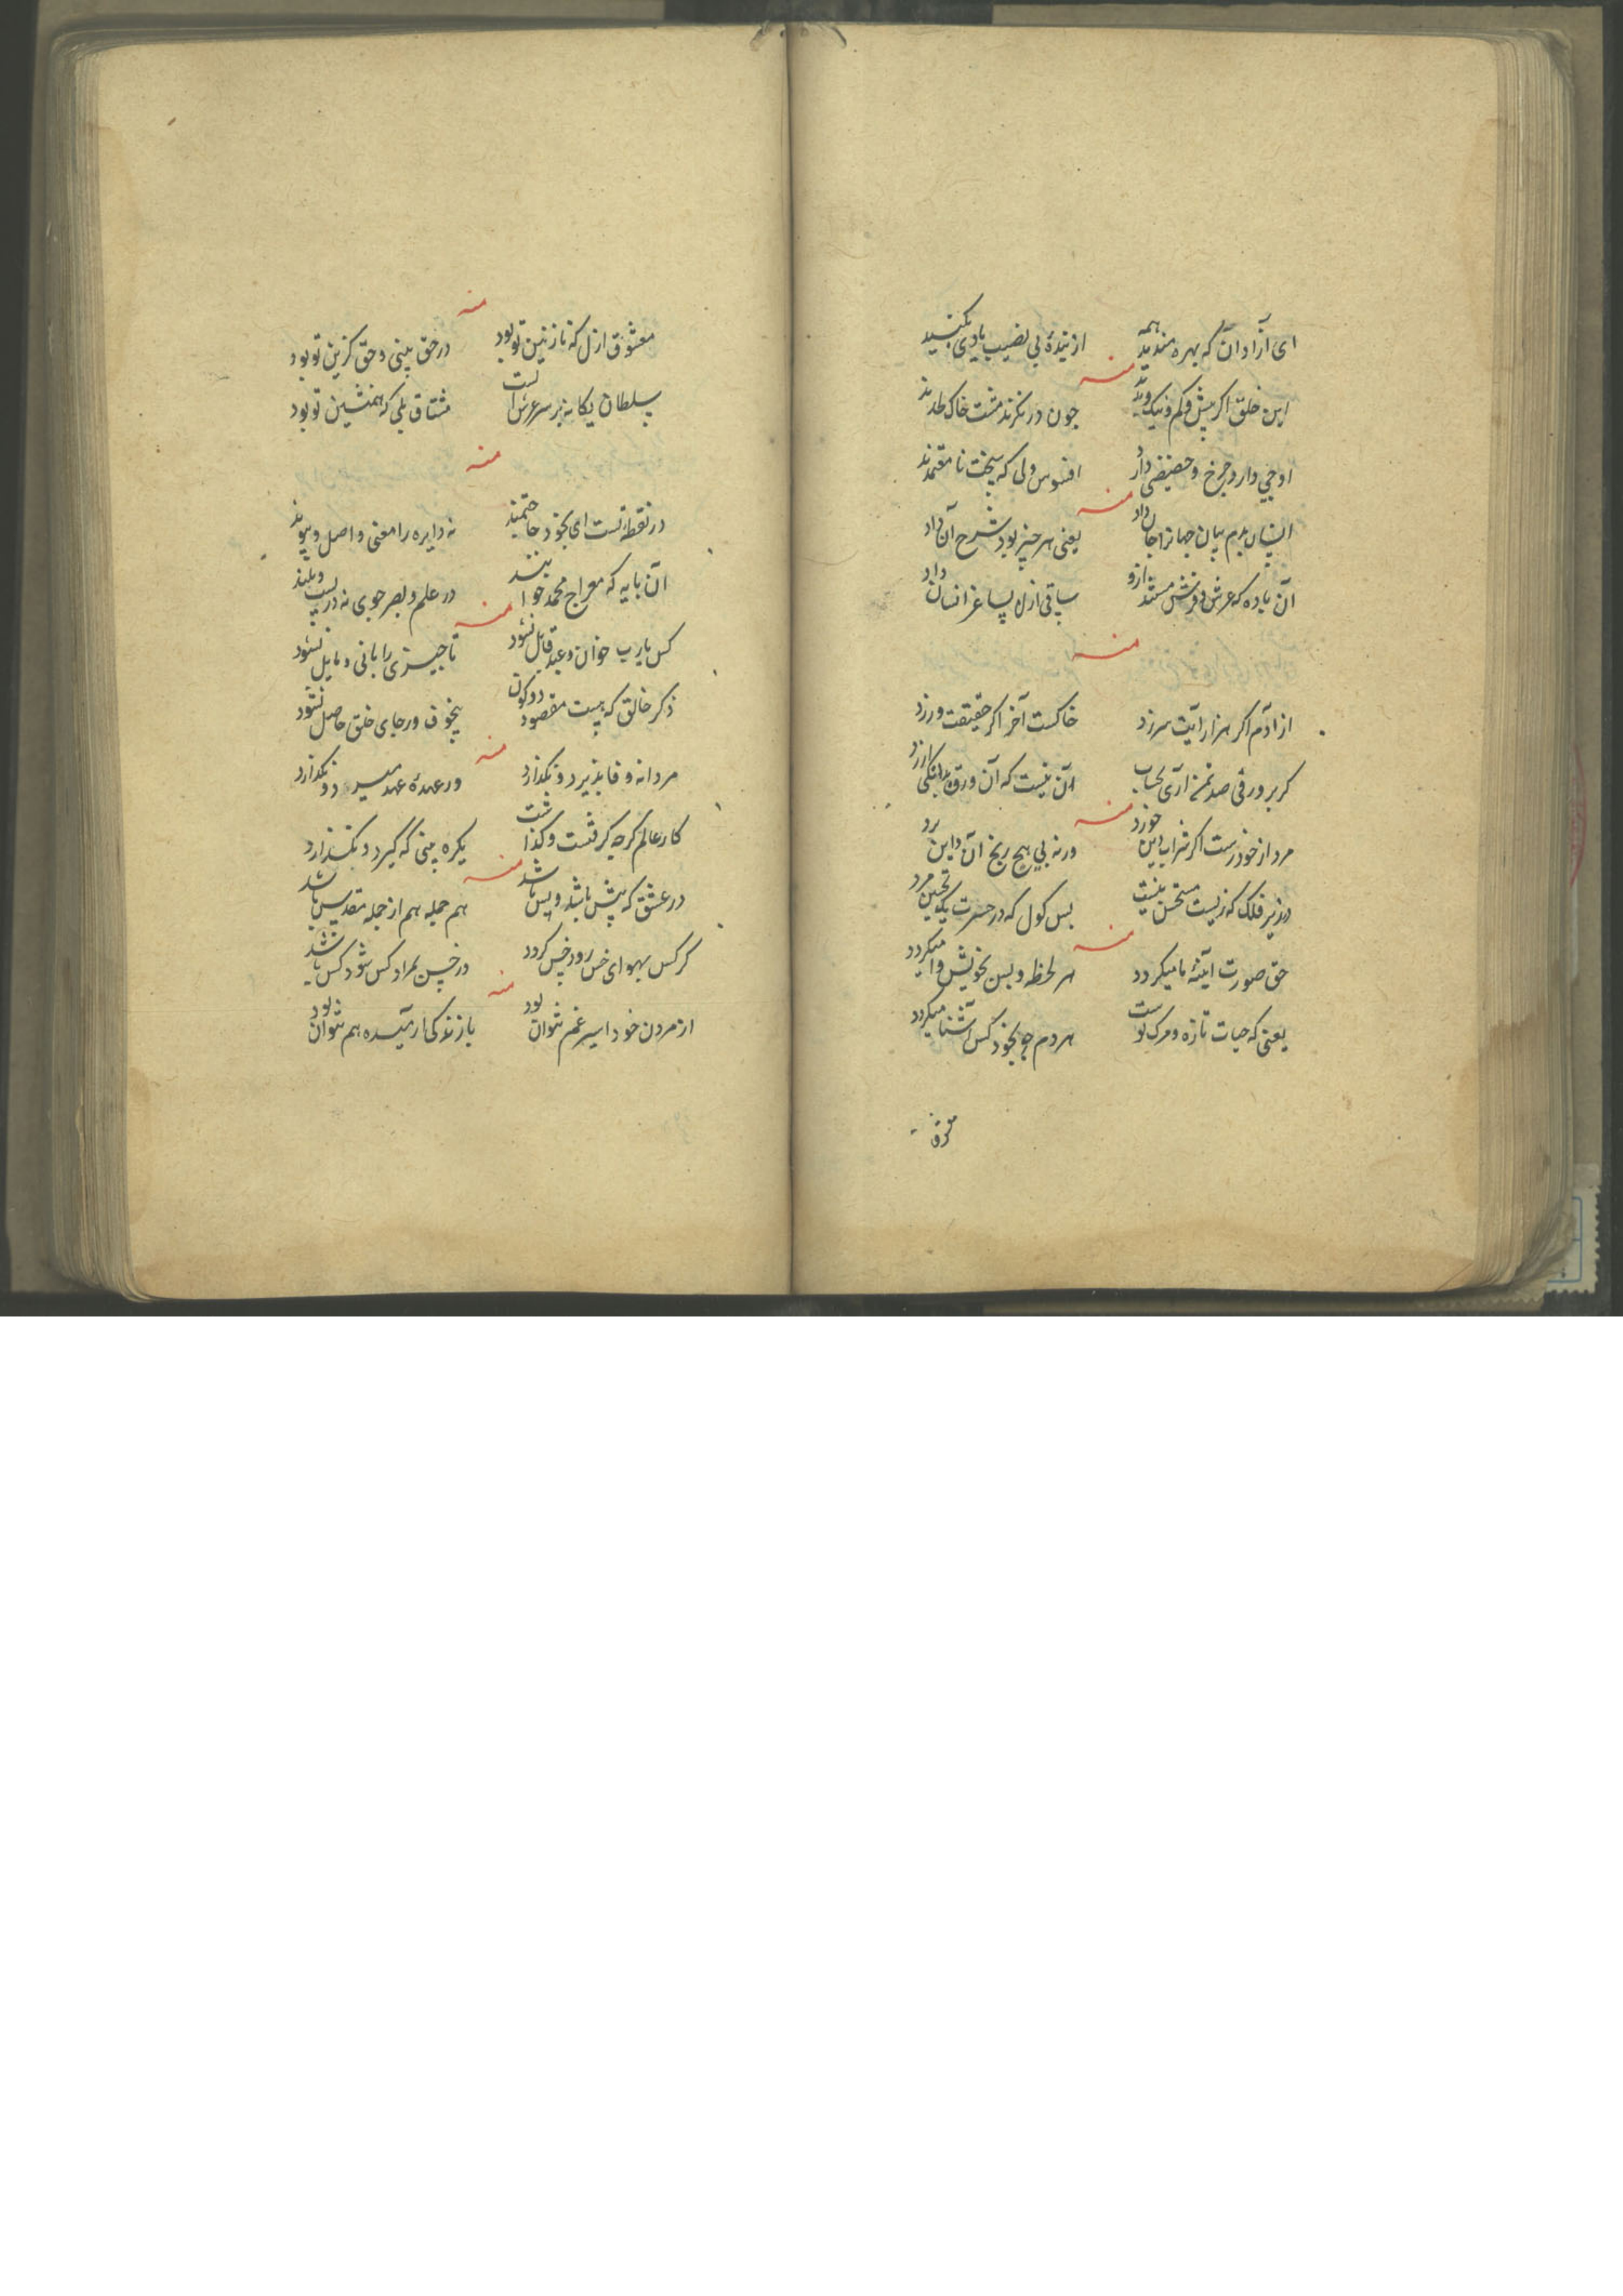 ای آزادان که بهره مندید همه
از بندهٔ بی نصیب یادی بکنید
منه
این خلق اگر بیش و کم و نیک و بدند
چون درنگرند مشت خاک لحدند
اوجی دارد چرخ و حضیضی دارد
افسوس ولی که سخت نا معتمدند
منه
انسان بدم بیان جهانرا جان داد
یعنی هر چیز بود شرح آن داد
آن باده که عرش و فرش مستند ازو
ساقی ازل بساغر انسان داد
منه
از آدم اگر هزار آیت سر زد
خاکست آخر اگر حقیقت ورزد
گر بر ورقی صد نمنه آری بحساب
آن نیست که آن ورق بدانگی ارزد
منه
مرد از خود رست اگر شراب این خورد
ورنه بی هیچ رنج آن و این برد
در زیر فلک که زیست مستحسن نیست
بس کول که در حسرت یک تحسین مرد
منه
حق صورت آینهٔ ما میکردد
هر لحظه و بس بخویش وا میکردد
یعنی که حیات تازه و مرک نو است
هر دم چو بخود کس آشنا میکردد
معشوق ازل که نازنین تو بود
در حق بینی و حق گزین تو بود
منه
سلطان یکانه بر سر عرش است
مشتاق بلی که همنشین تو بود
منه
در نقطه تست ای بخود حاجتمند
نه دایره را معنی و اصل و پیوند
آن پایه که معراج محمد خوانند
در علم و بصر جوی نه در پست و بلند
منه
کس یارب خوان و عبد قابل نشود
تا چیزی را بانی و مایل نشود
ذکر خالق که هست مقصود دو کون
بیخوف و رجای خلق حاصل نشود
منه
مردانه وفا پذیرد و نگذارد
در عهدهٔ عهد میرد و نگذارد
کار عالم گرچه گرفتست و گذاشت
یکره بینی که گیرد و نگذارد
منه
در عشق که پیش باشد و پس باشد
هم جمله هم از جمله مقدس باشد
گر کس بهوای خس رود خس کردد
در خس بمراد کس شود کس باشد
منه
از مردن خود اسیر غم نتوان بود
با زندگی آرمیده هم نتوان بود